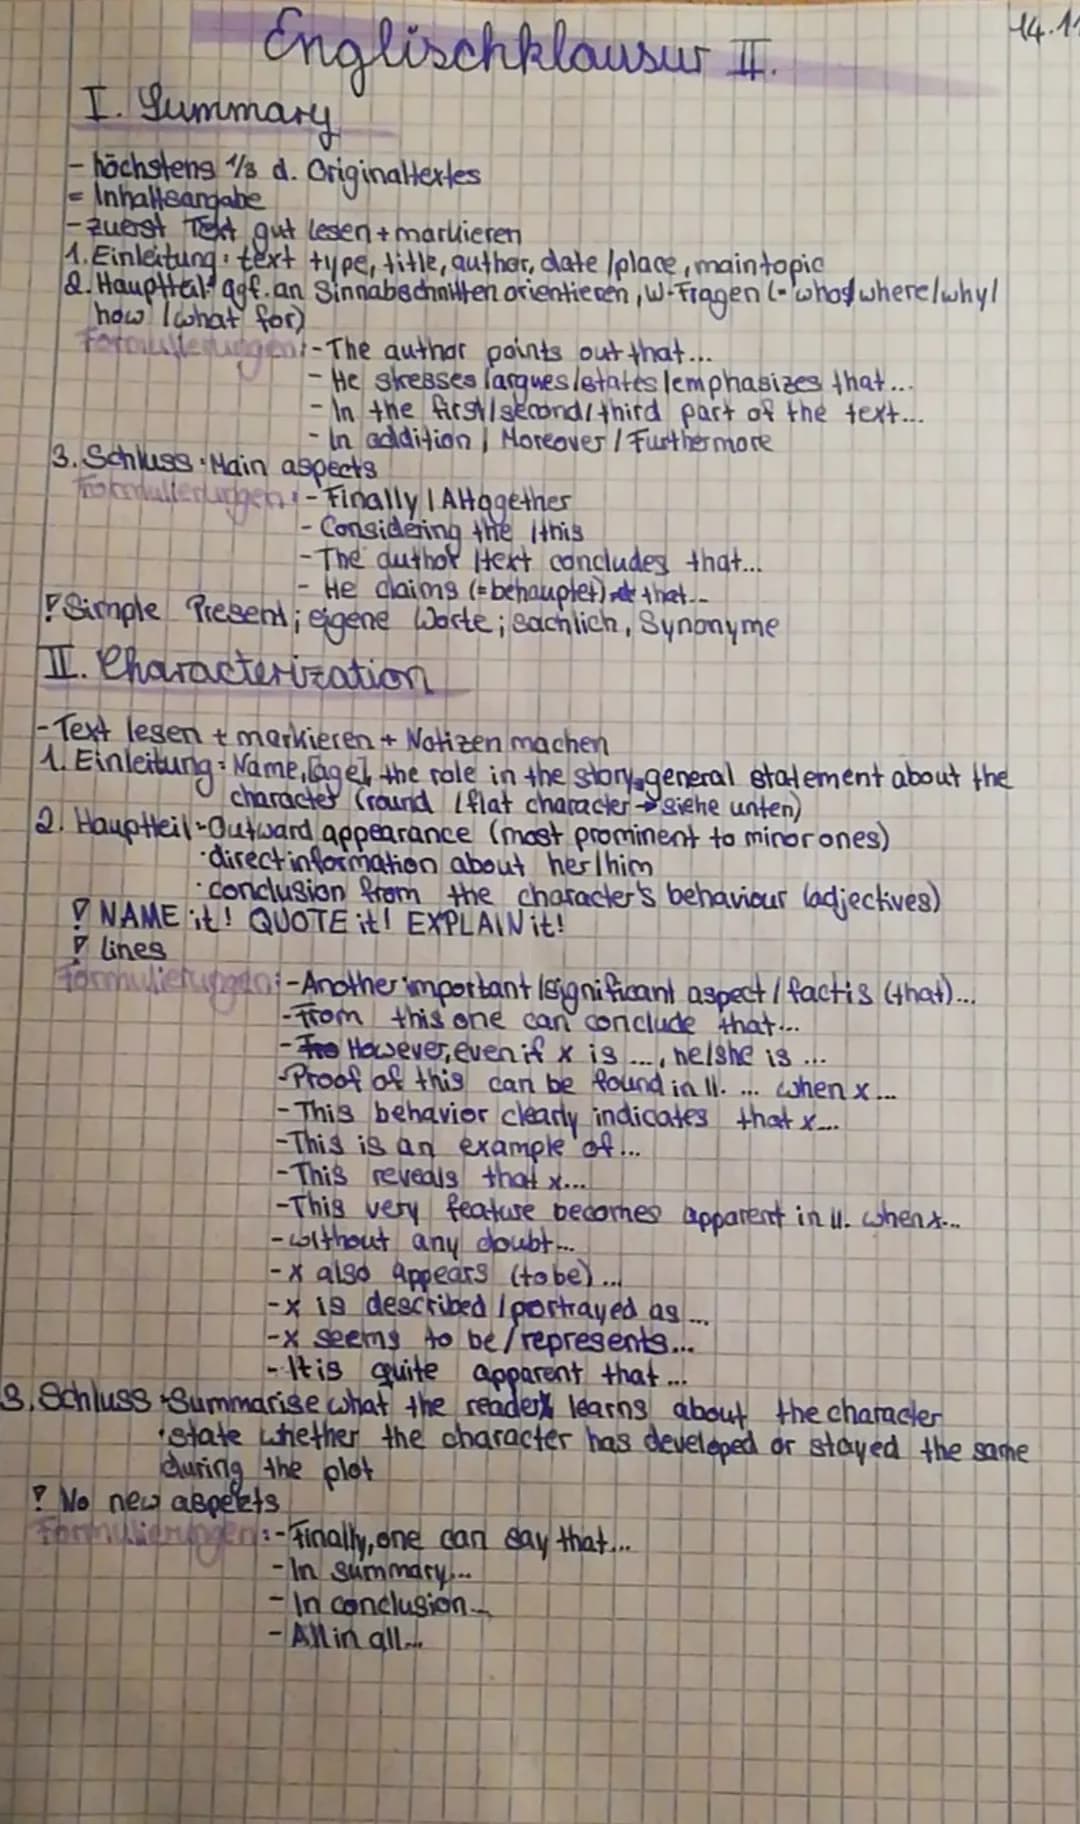 Englischklausur II.
14.11
I. Summary
- höchstens 1/3 d. Originaltextes
= Inhaltsangabe
- zuerst Text gut lesen + markieren
1. Einleitung: text type, title, author, date / place, main topic
2. Hauptteil: ggf. an Sinnabschnitten orientieren, W-Fragen (-who/where/why/
how / what for)
Formulierungen: - The author points out that...
- He stresses / argues / states / emphasizes that...
- In the first / second / third part of the text...
- In addition / Moreover / Furthermore
3. Schluss: Main aspects
Formulierungen: - Finally / Altogether
- Considering the / this
- The author / text concludes that...
- He claims (= behauptet) that...
! Simple Present; eigene Worte; sachlich, Synonyme
II. Characterization
- Text lesen + markieren + Notizen machen
1. Einleitung: Name, [age], the role in the story, general statement about the
character (round / flat character → siehe unten)
2. Hauptteil: Outward appearance (most prominent to minor ones)
· direct information about her/him
· conclusion from the character's behaviour (adjectives)
! NAME it! QUOTE it! EXPLAIN it!
! lines
Formulierungen: - Another important / significant aspect / fact is (that)...
- From this one can conclude that...
- However, even if x is ..., he/she is ...
- Proof of this can be found in ll. ... when x ...
- This behavior clearly indicates that x...
- This is an example of...
- This reveals that x...
- This very feature becomes apparent in ll. when x...
- without any doubt...
- x also appears (to be) ...
- x is described / portrayed as ...
- x seems to be / represents...
- It is quite apparent that ...
3. Schluss · Summarise what the reader learns about the character
· state whether the character has developed or stayed the same
during the plot
! No new aspekts
Formulierungen: - Finally, one can say that...
- In summary...
- In conclusion...
- All in all...